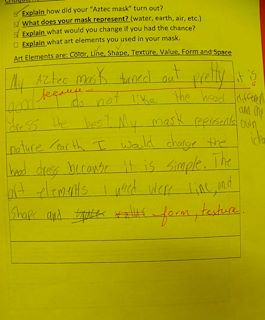 Explain how did your "Aztec mask" turn out?
What does your mask represent? (water, earth, air, etc.)
Explain what would you change if you had the chance?
Explain what art elements you used in your mask.
Art Elements are: Color, Line, Shape, Texture, Value, Form and Space
My Aztec mask turned out pretty
good I do not like the head
dress the best My mask represents
nature/earth I would change the
head dress because it is simple. The
art elements I used were line, and
shape and form, texture.